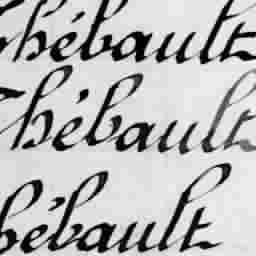 Thébault
Thébault
hébault